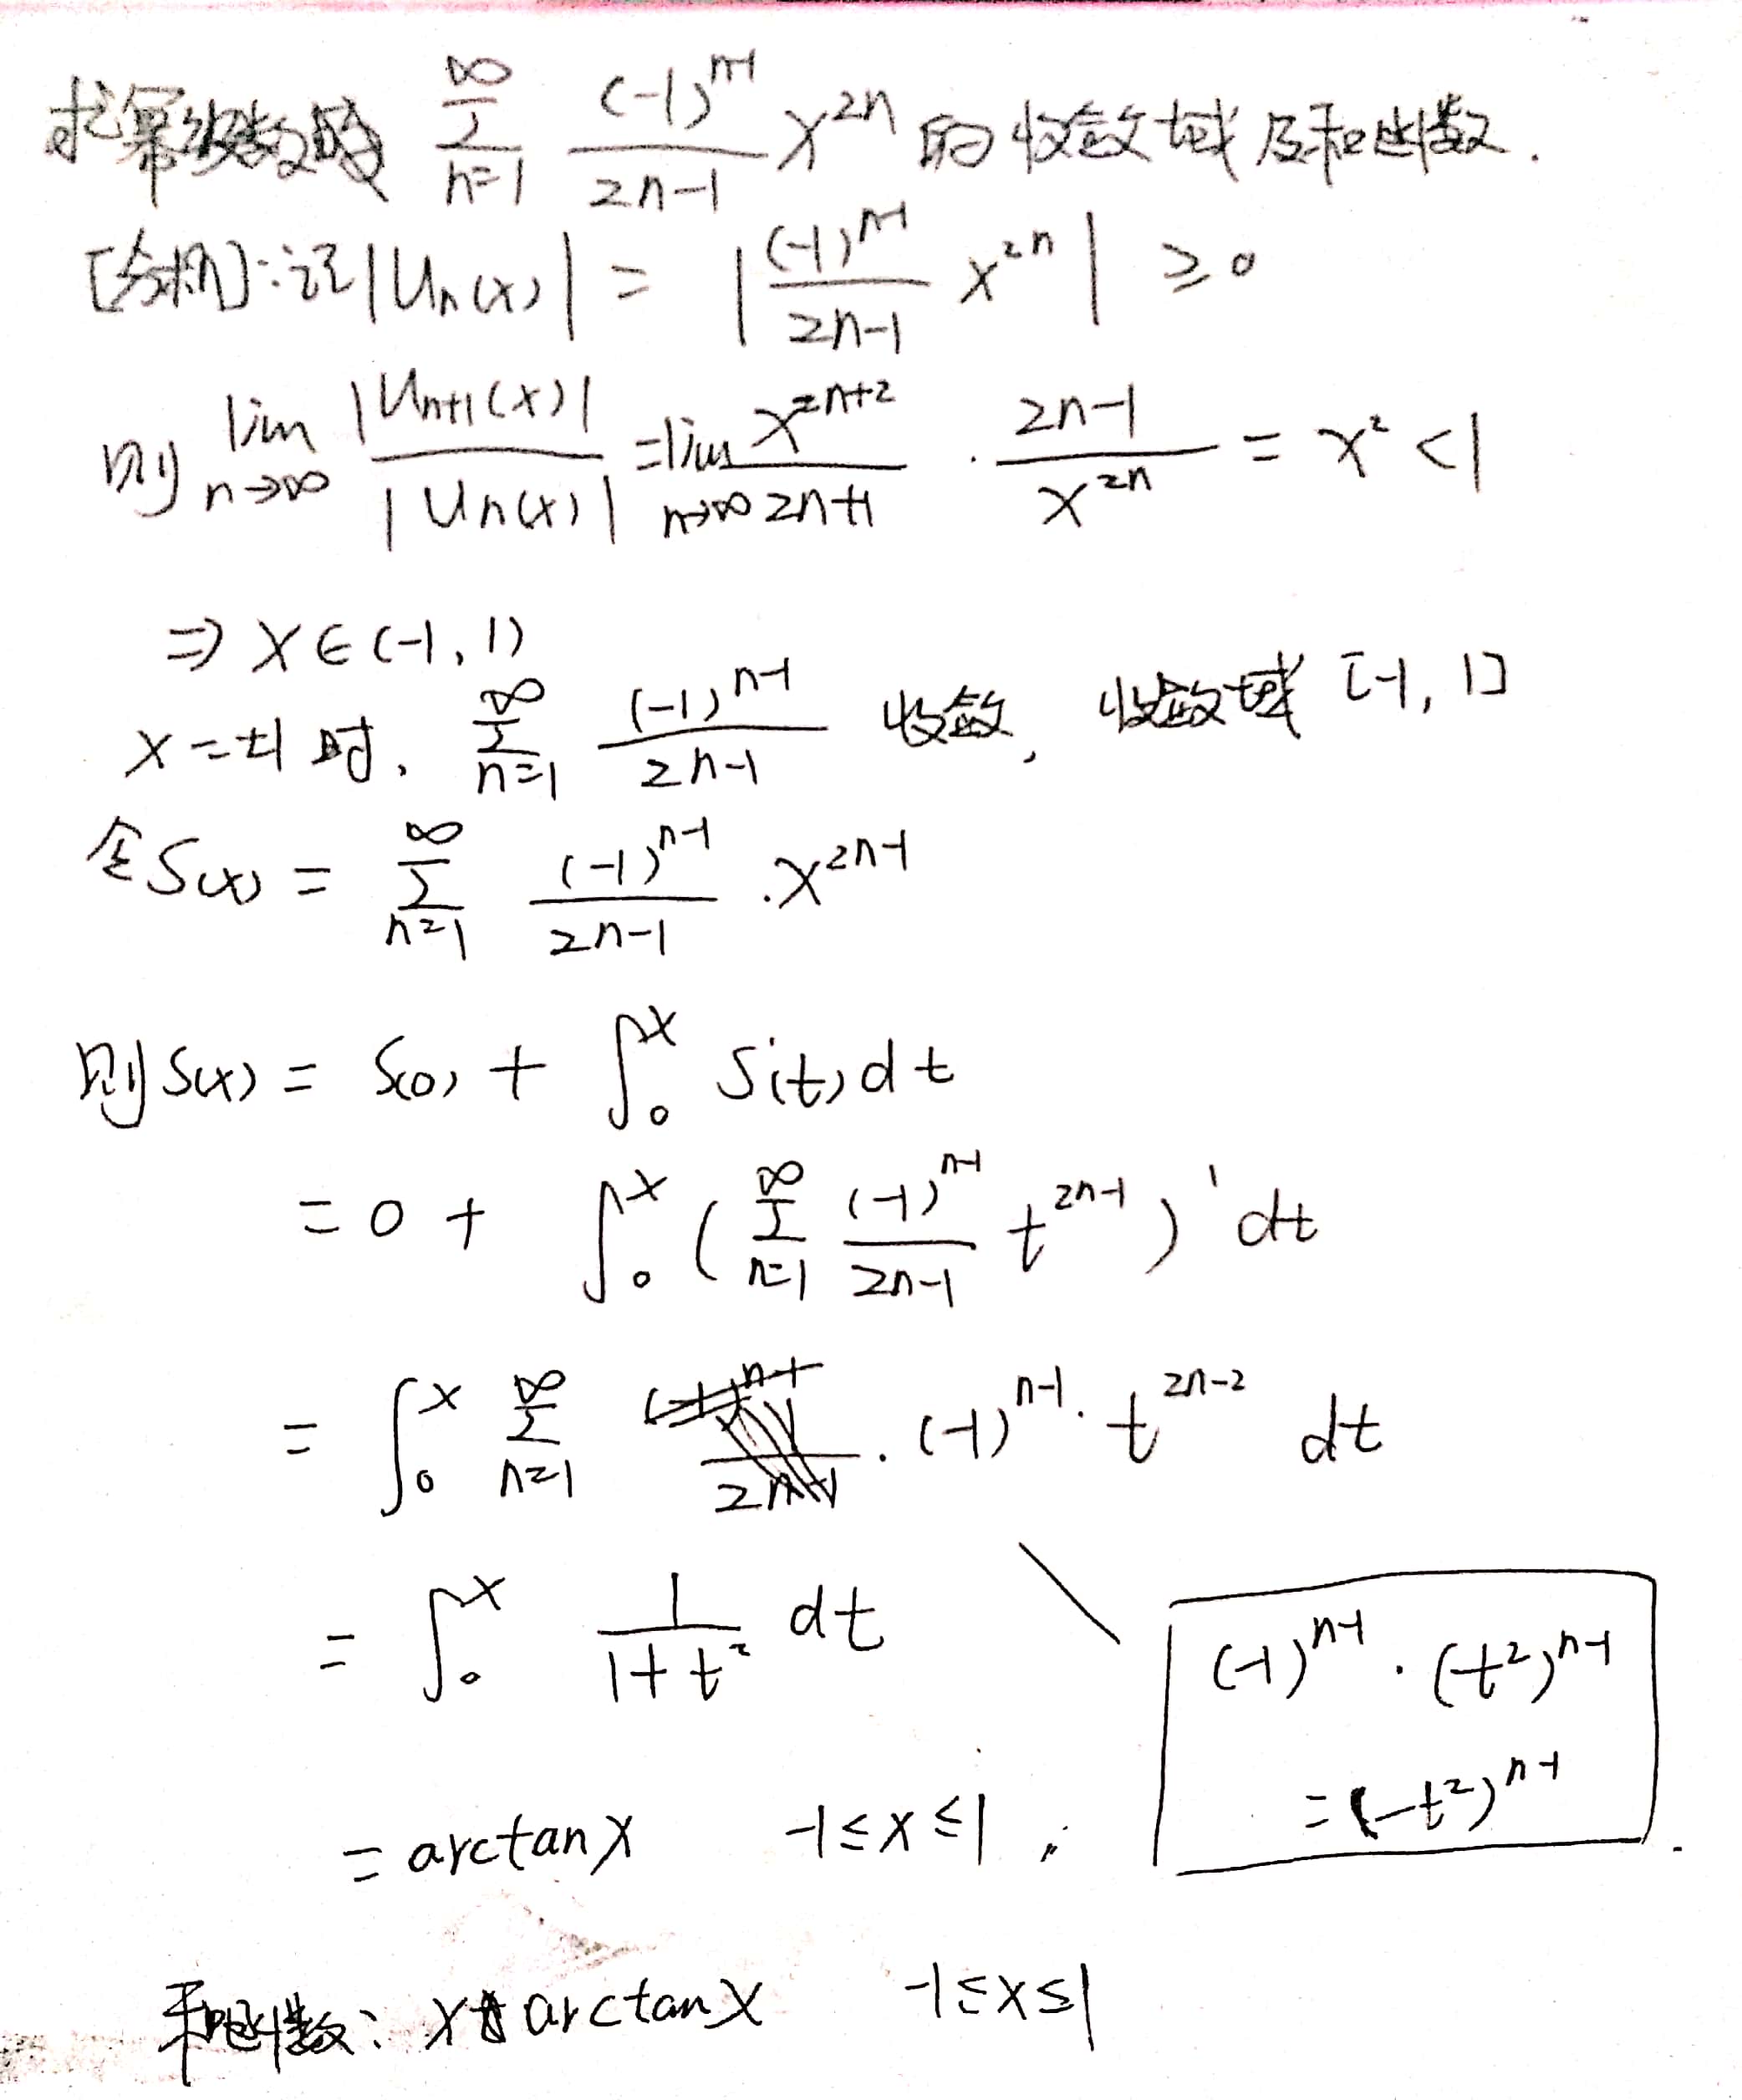 求幂级数的 $\sum_{n=1}^{\infty} \frac{(-1)^{n-1}}{2n-1} x^{2n}$ 的收敛域及和函数.
[分析]:记 $|U_n(x)| = \left|\frac{(-1)^{n-1}}{2n-1} x^{2n}\right| \geq 0$
则 $\lim_{n\to\infty} \frac{|U_{n+1}(x)|}{|U_n(x)|} = \lim_{n\to\infty} \frac{x^{2n+2}}{2n+1} \cdot \frac{2n-1}{x^{2n}} = x^2 < 1$
$\Rightarrow x \in (-1, 1)$
$x = \pm 1$ 时, $\sum_{n=1}^{\infty} \frac{(-1)^{n-1}}{2n-1}$ 收敛, 收敛域 $[-1, 1]$
令 $S(x) = \sum_{n=1}^{\infty} \frac{(-1)^{n-1}}{2n-1} \cdot x^{2n-1}$
则 $S(x) = S(0) + \int_0^x S'(t) dt$
$= 0 + \int_0^x \left(\sum_{n=1}^{\infty} \frac{(-1)^{n-1}}{2n-1} t^{2n-1}\right)' dt$
$= \int_0^x \sum_{n=1}^{\infty} \cdot (-1)^{n-1} \cdot t^{2n-2} dt$
$= \int_0^x \frac{1}{1+t^2} dt$
$(-1)^{n-1} \cdot (t^2)^{n-1}$
$= (-t^2)^{n-1}$
$= \arctan x \quad -1 \leq x \leq 1$
和函数: $x \arctan x \quad -1 \leq x \leq 1$